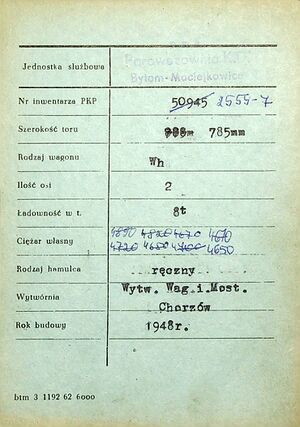 Parowozownia K.D.
Jednostka służbowa
Bytom-Maciejkowice
Nr inwentarza PKP 50945 2555-7
Szerokość toru 785mm
Rodzaj wagonu Wh
Ilość osi 2
Ładowność w t. 8t
Ciężar własny 4890 4820 4670 4610
4720 4680 4700 4650
Rodzaj hamulca ręczny
Wytwórnia Wytw. Wag.i.Most.
Chorzów
Rok budowy 1948r.
btm 3 1192 62 6000